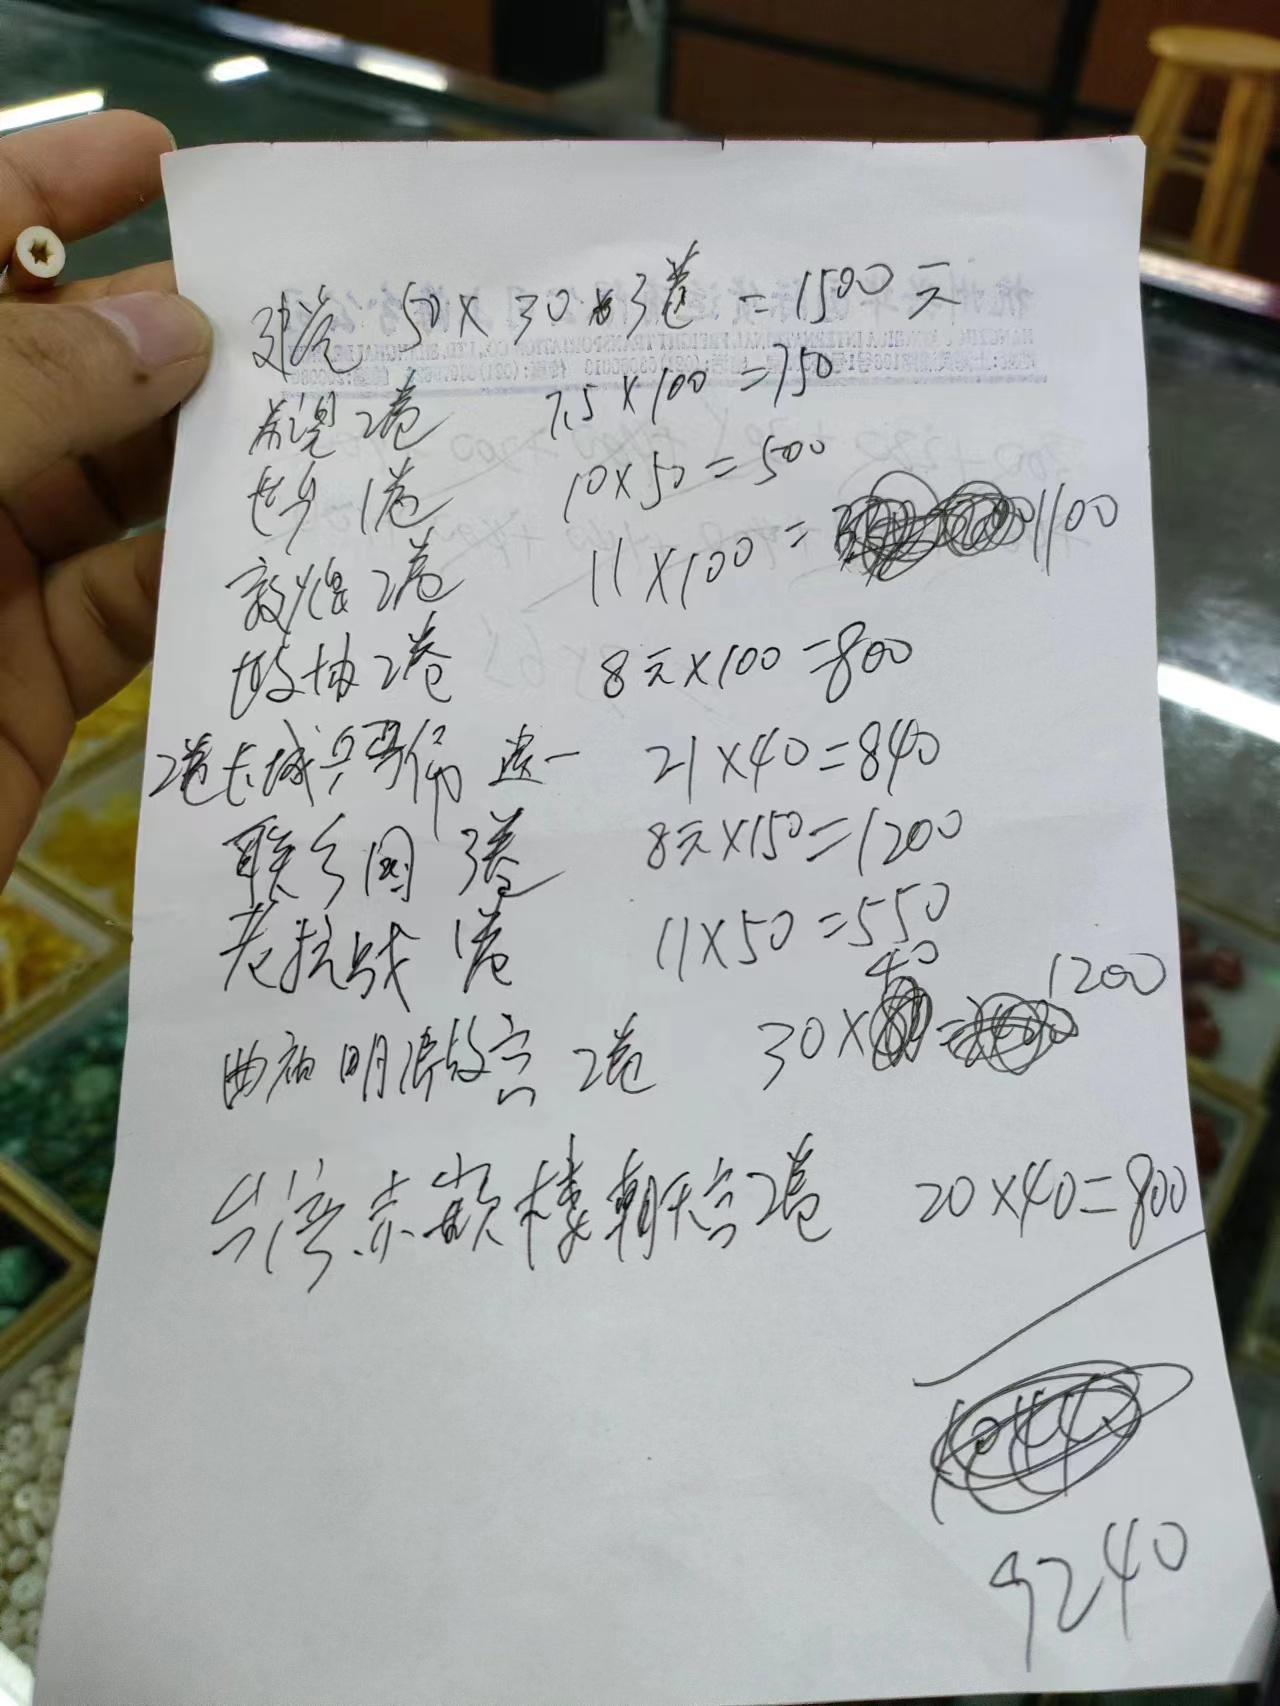 建党 50×30 3卷 =1500元
希望 2卷 7.5×100=750
长乡 1卷 10×50=500
敦煌 2卷 11×100= 1100
故协 2卷 8元×100=800
2卷长城兵马俑 遗一 21×40=840
联合国 3卷 8元×150=1200
老抗战 1卷 11×50=550
曲有明清故宫 2卷 30× 40 = 1200
台湾赤崁楼朝天宫2卷 20×40=800
9240